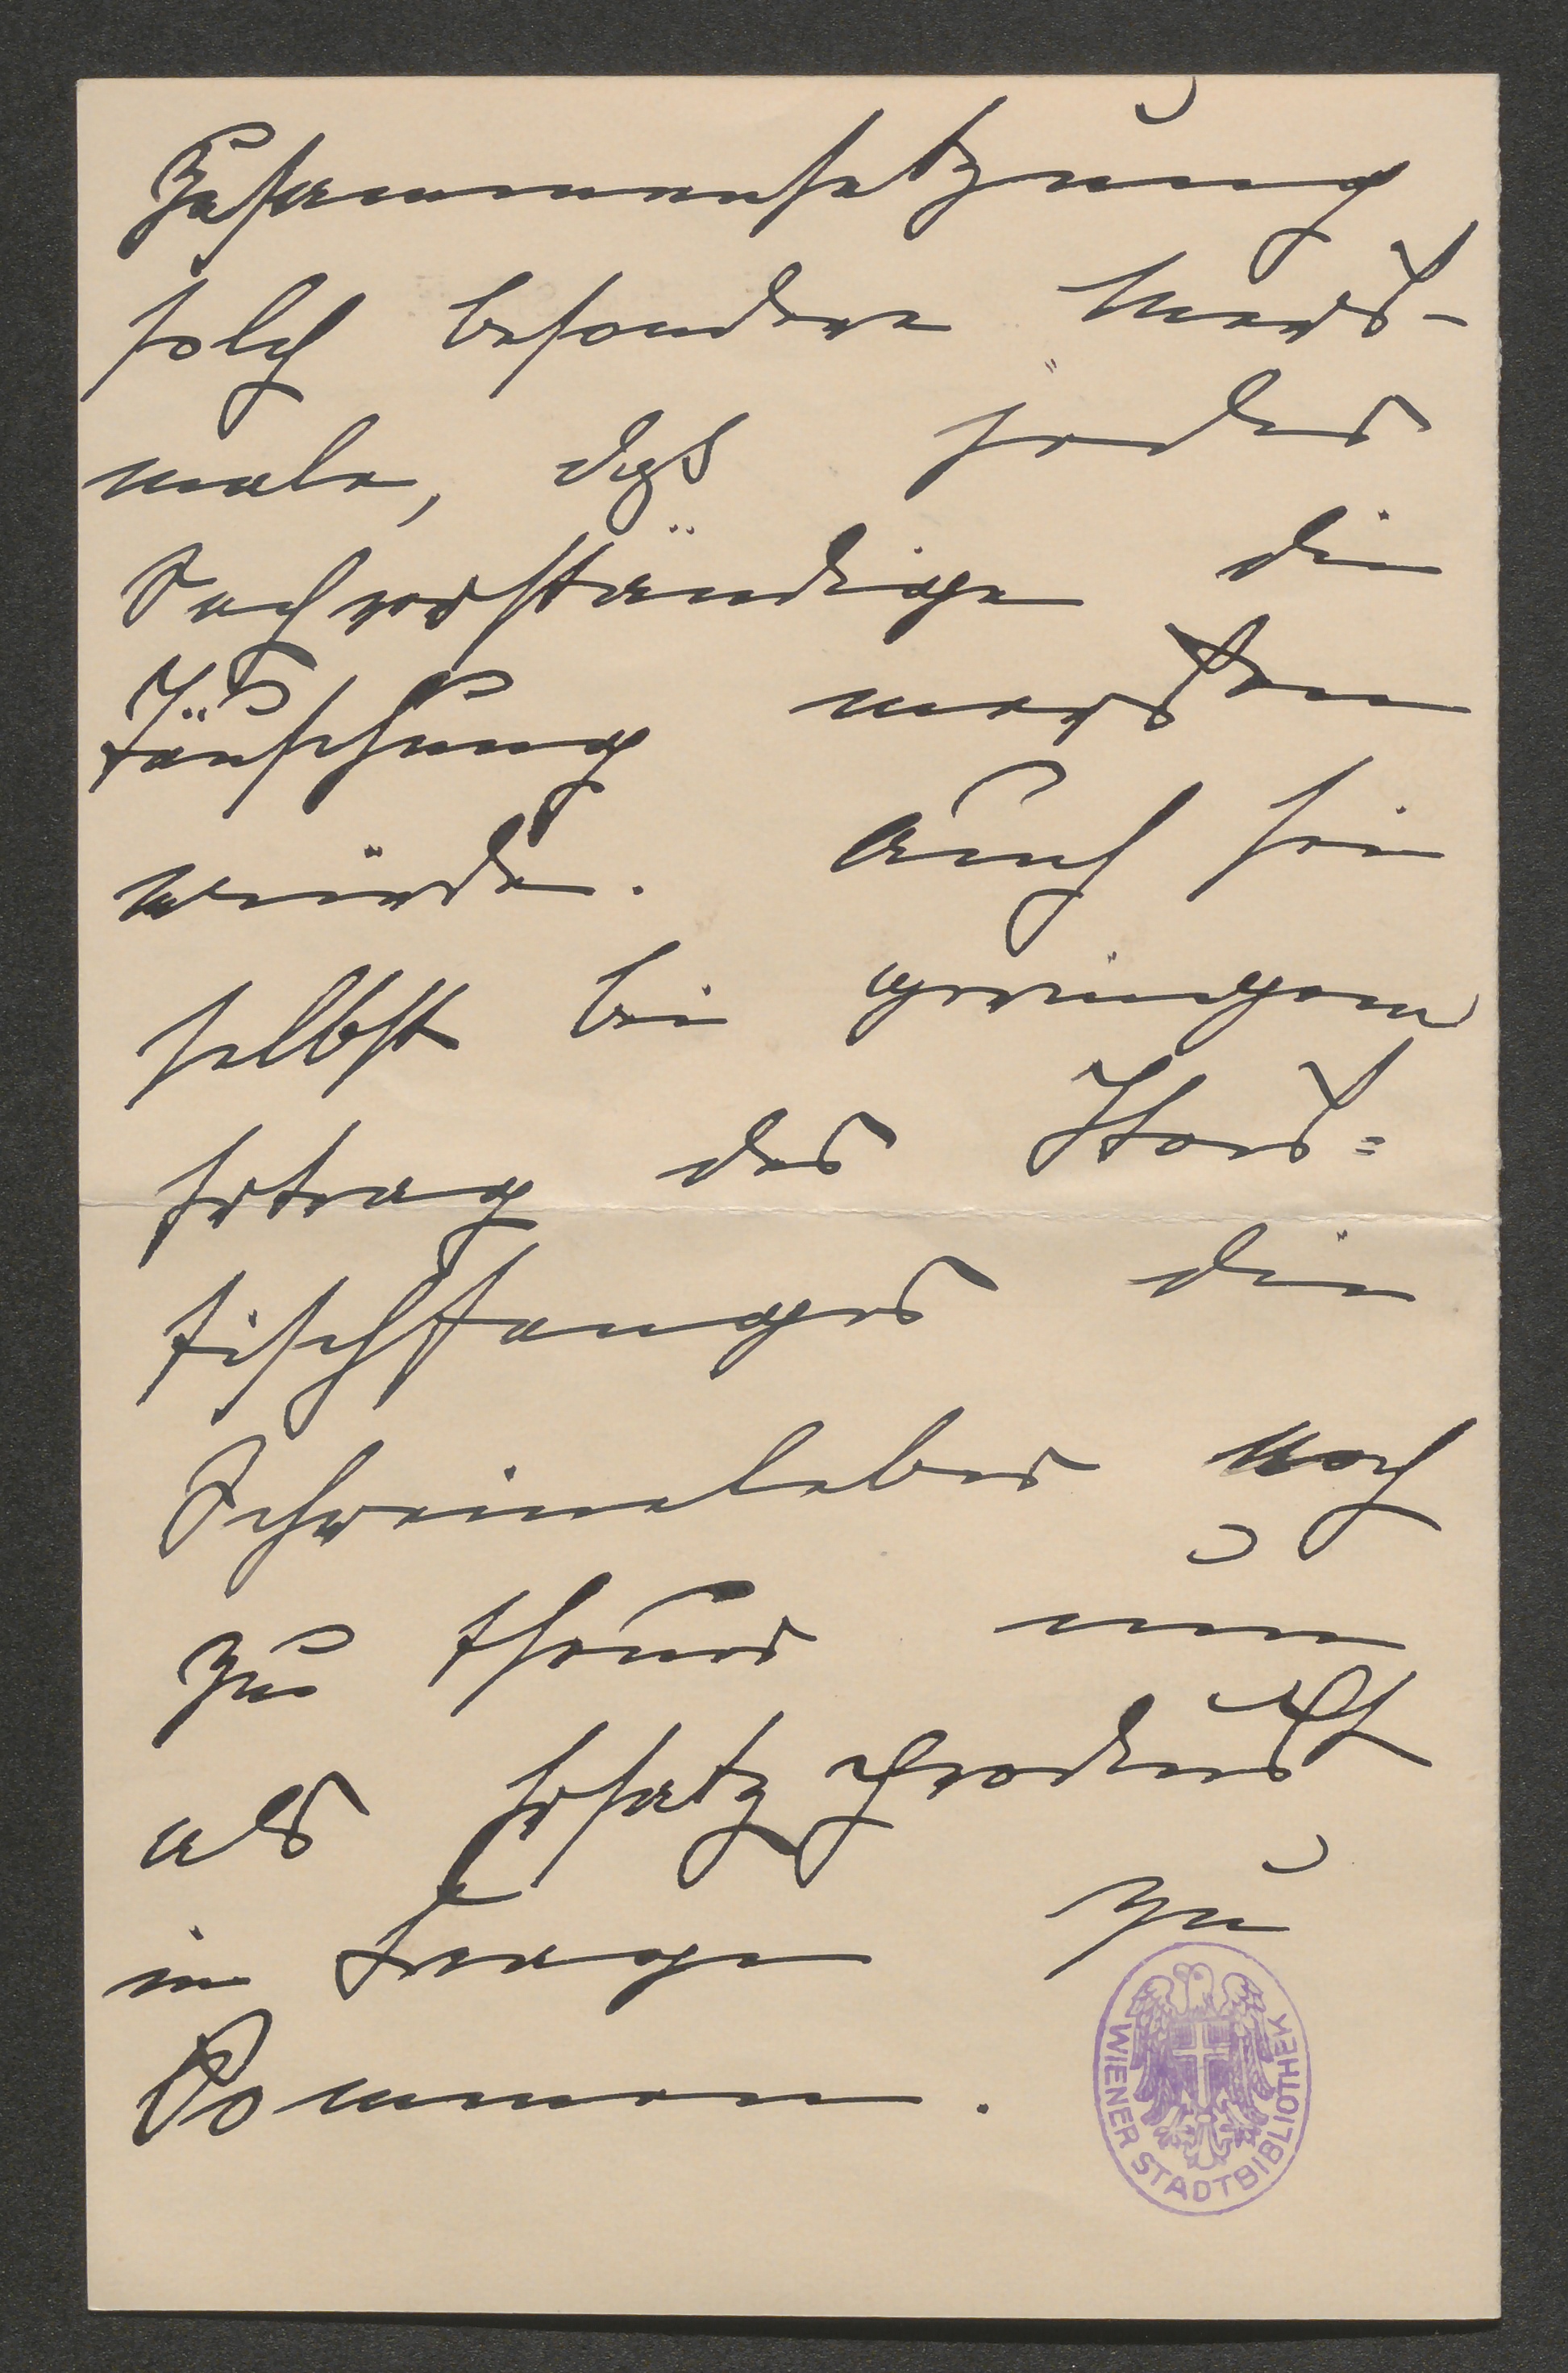 Zusammensetzung
solch besondere Merk-
male, daß jeder
Sachverständige die
Täuschung merken
würde. Auch sei
selbst bei geringem
Ertrag des Stör=
fischfanges die
Schweineleber noch
zu theuer um
als Ersatzprodukt
in Frage zu
kommen.
WIENER STADTBIBLIOTHEK